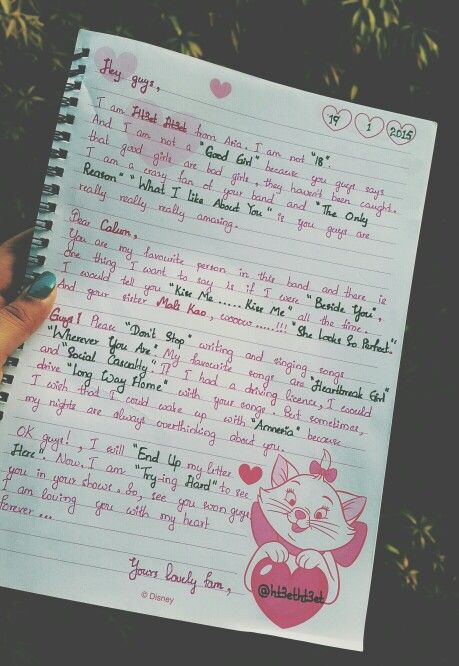 Hey guys,
17 1 2015
I am Ht3et Ht3et from Asia. I am not "18".
And I am not a "Good Girl" because you guys says
that good girls are bad girls, they haven't been caught.
I am a crazy fan of your band and "The Only
Reason" "What I like About You" is you guys are
really really really amazing.
Dear Calum,
You are my favourite person in this band and there is
one thing I want to say is if I were "Beside You",
I would tell you "Kiss Me ..... Kiss Me" all the time.
And your sister Mali Kao, woooow.....!!! "She Looks So Perfect".
Guys! Please "Don't Stop" writing and singing songs
"Wherever You Are". My favourite songs are "Heartbreak Girl"
and "Social Casualty". If I had a driving licence, I would
drive "Long Way Home" with your songs. But sometimes,
I wish that I could wake up with "Amnesia" because
my nights are always overthinking about you.
OK guys!, I will "End Up my letter
Here". Now, I am "Try-ing Hard" to see
you in your shows. So, see you soon guys
I am loving you with my heart
forever...
Yours lovely fam,
@ht3etht3et
© Disney